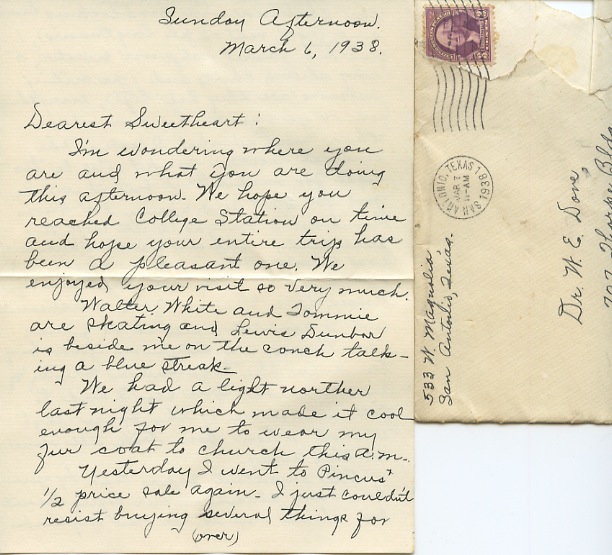 Sunday Afternoon.
March 6, 1938.
Dearest Sweetheart:
I'm wondering where you
are and what you are doing
this afternoon. We hope you
reached College Station on time
and hope your entire trip has
been a pleasant one. We
enjoyed your visit so very much.
Walter White and Tommie
are skating and Lewis Dunbar
is beside me on the couch talk-
ing a blue streak.
We had a light norther
last night which made it cool
enough for me to wear my
fur coat to church this a.m.
Yesterday I went to Pincus'
1/2 price sale again. I just couldn't
resist buying several things for
(over)
SAN ANTONIO, TEXAS 1
MAR 7
11-AM
1938
533 W. Magnolia
San Antonio, Texas.
Dr. W. E. Dove,